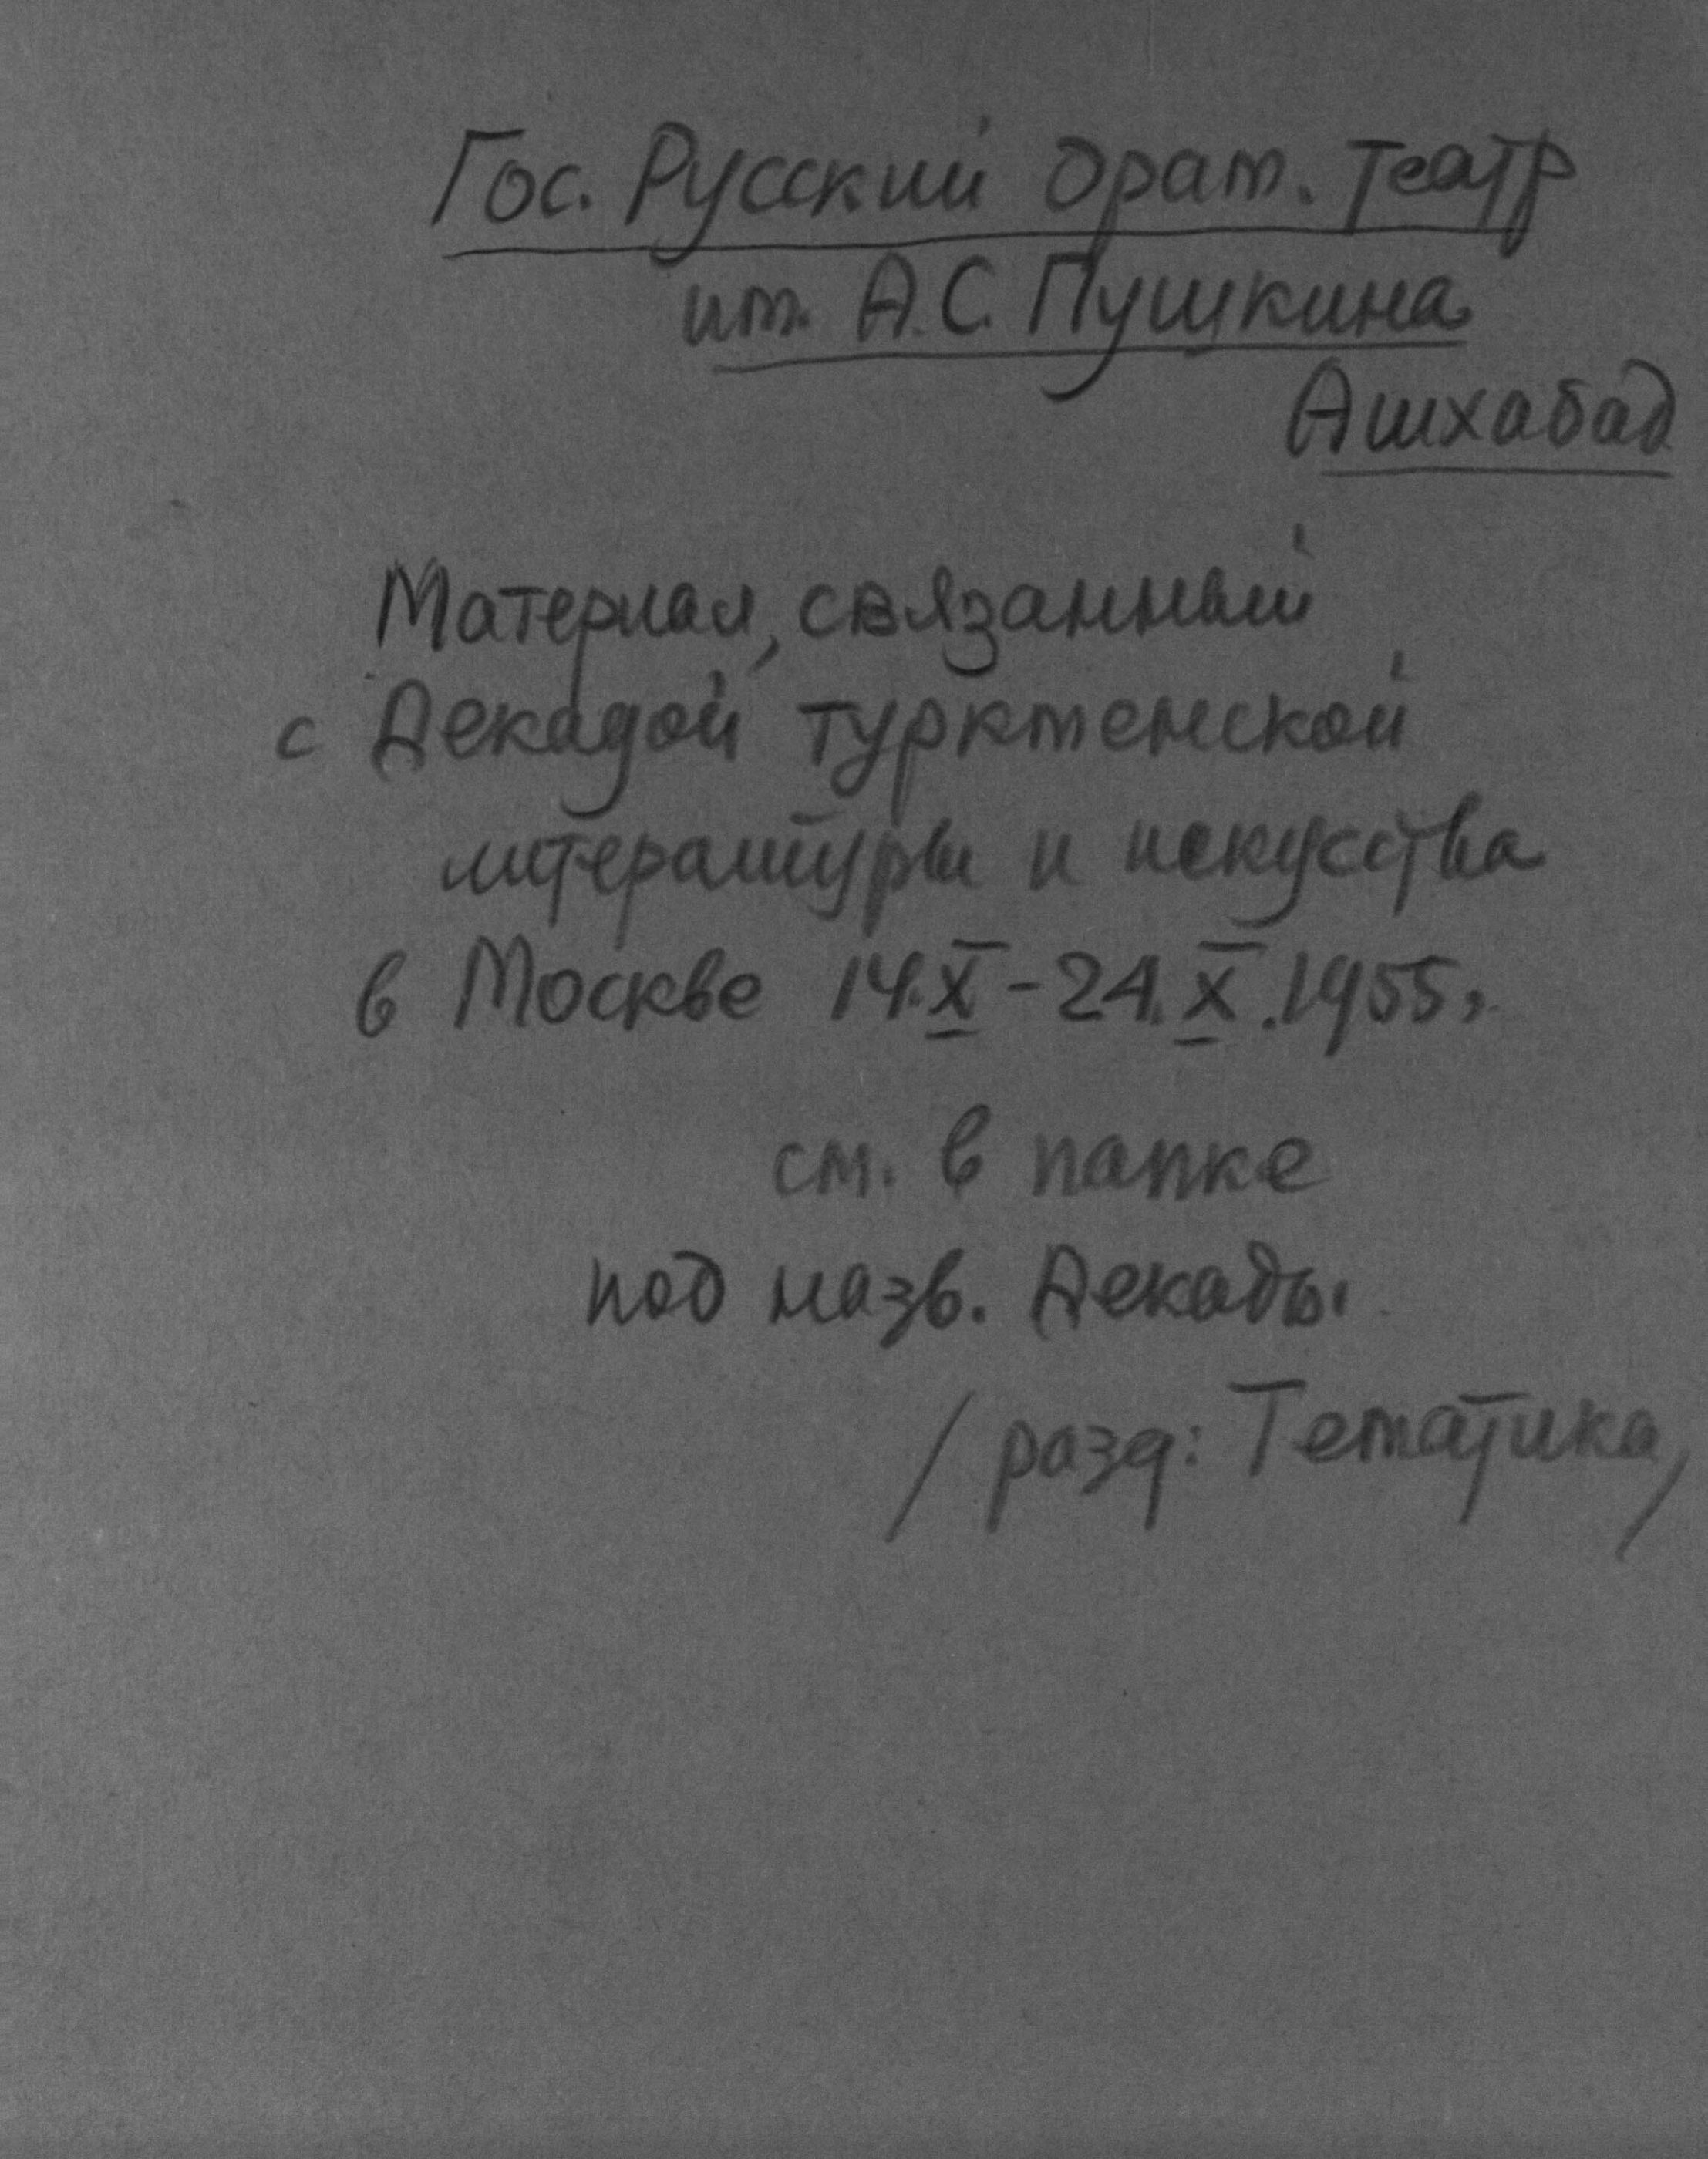 Гос. Русский драм. театр
им. А.С. Пушкина
Ашхабад
Материал, связанный
с Декадой туркменской
литературы и искусства
в Москве 14.X-24.X.1955,
см. в папке
под назв. Декады
/разд: Тематика/